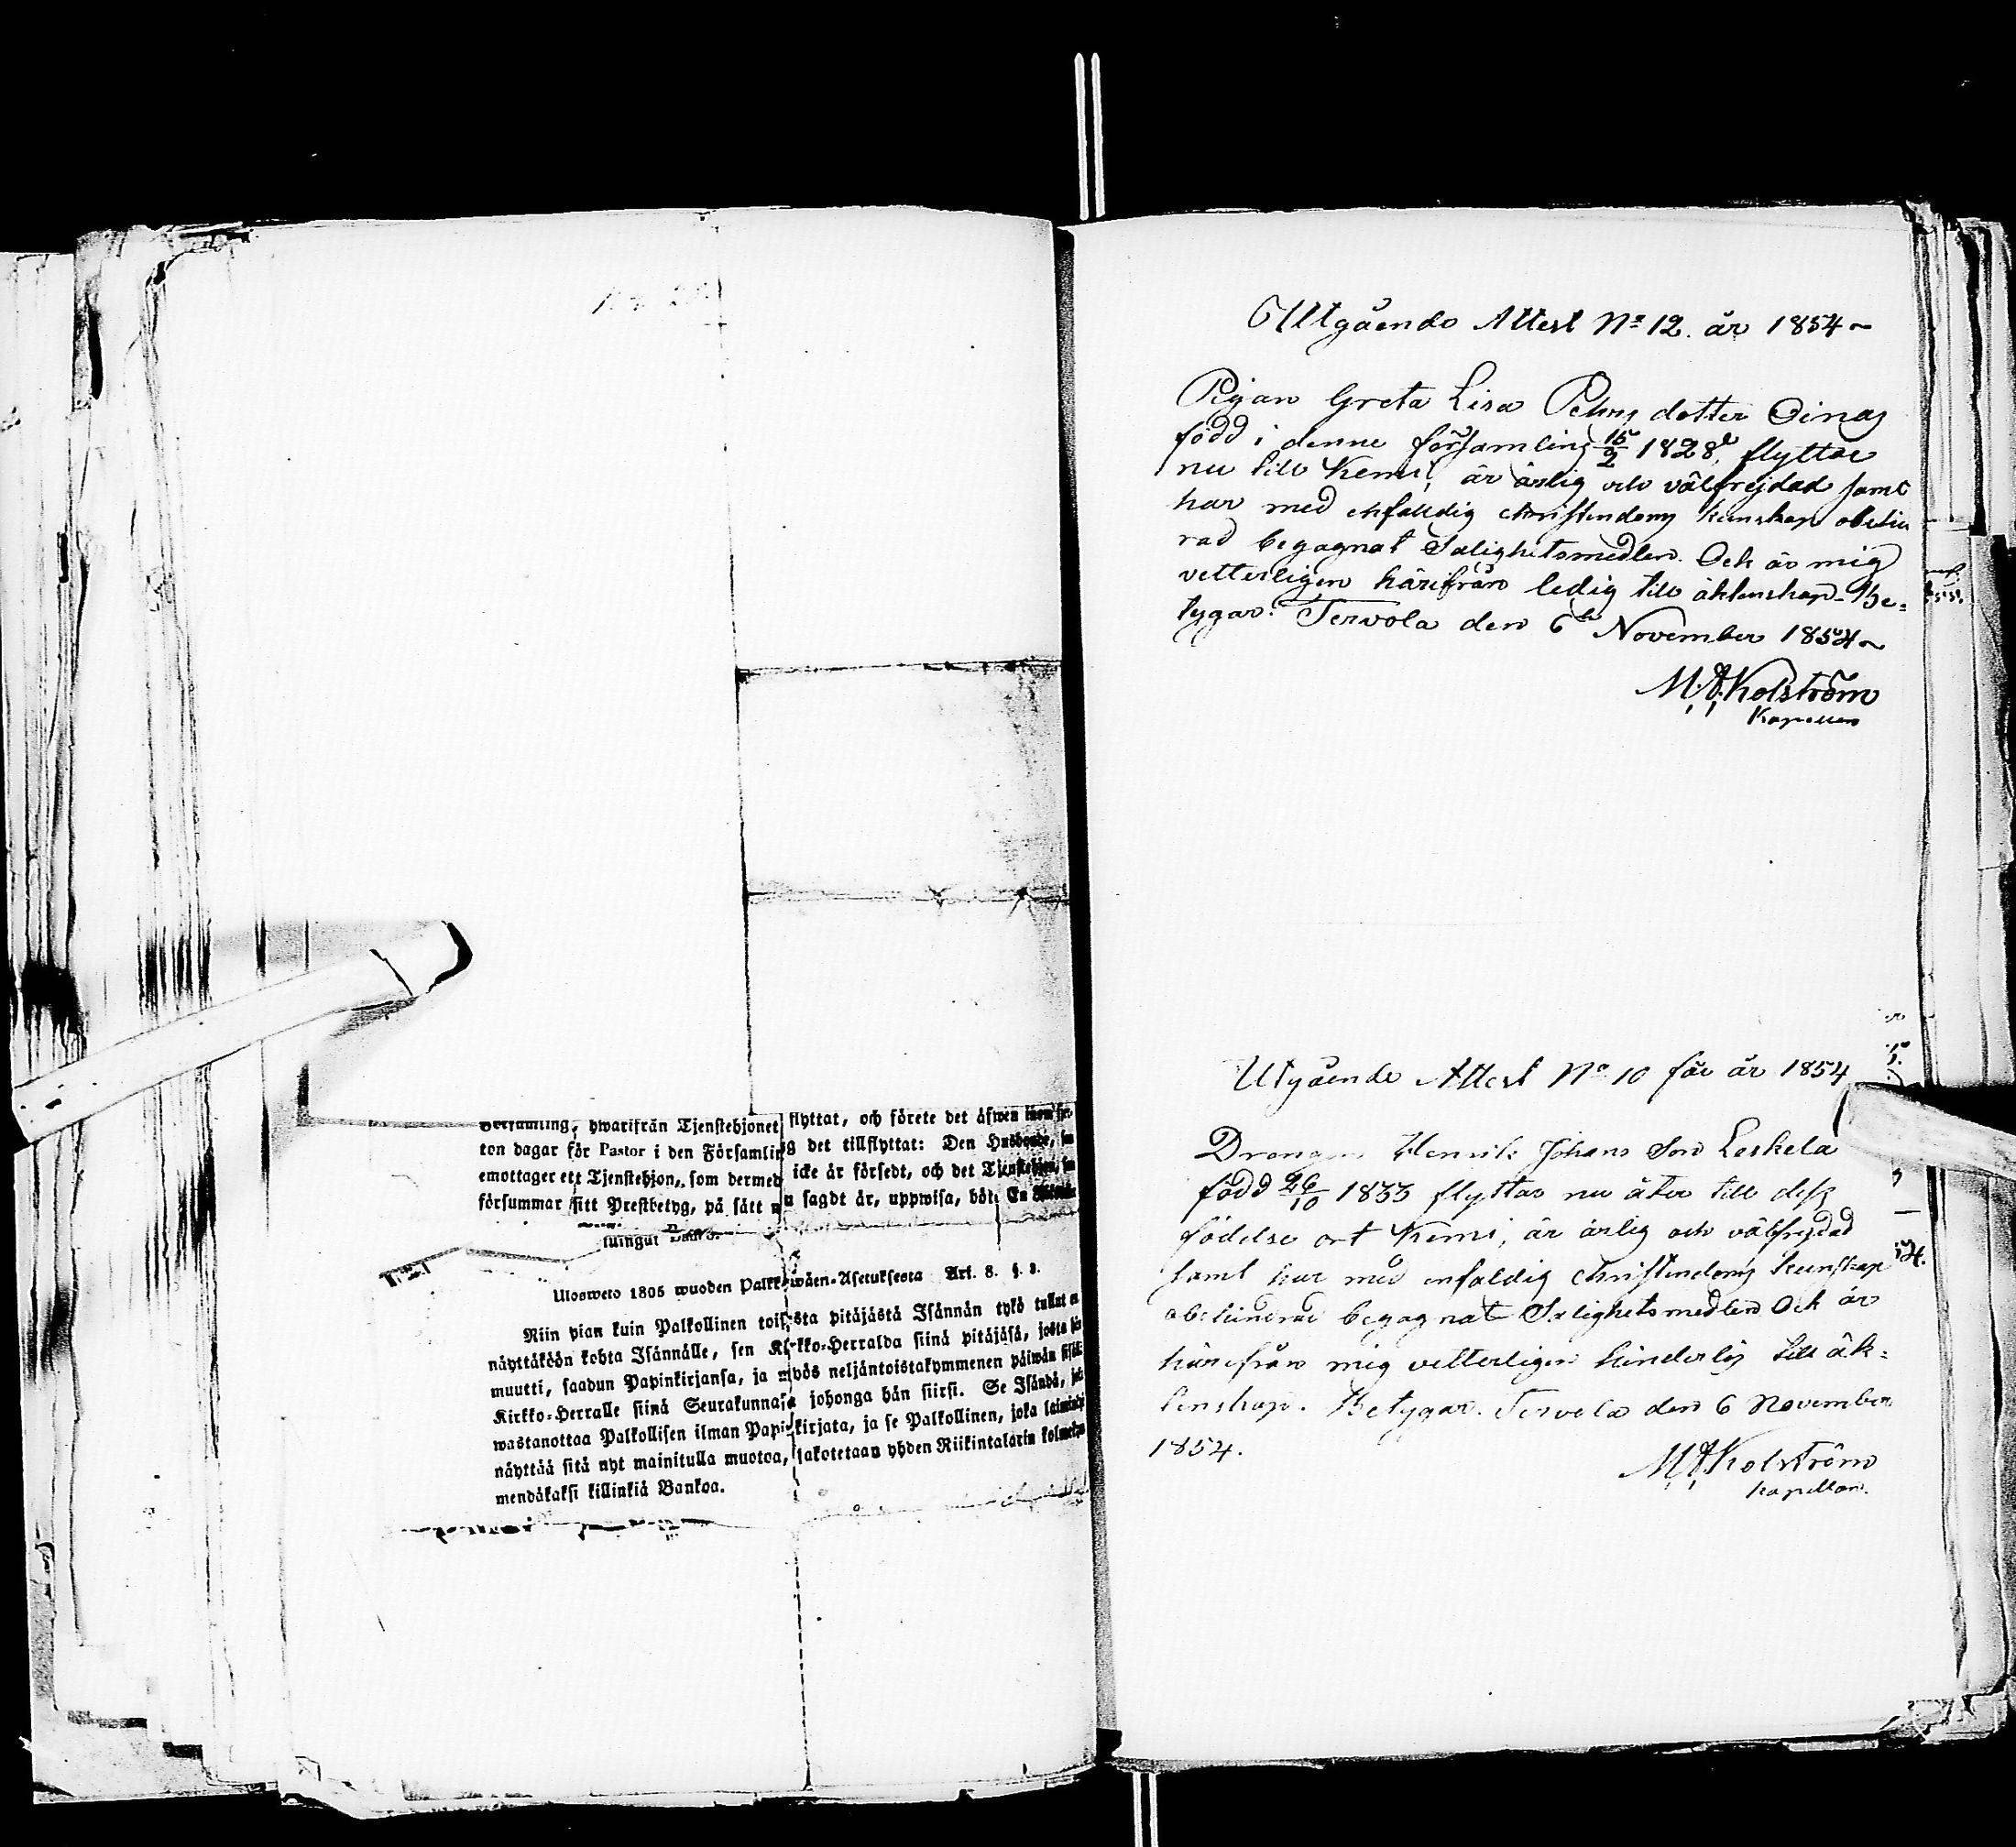 Församling, hwarifrån Tjenstehjonet flyttat, och förete det äfwen inom fjor-
ton dagar för Pastor i den Församling det tillflyttat: Den Husbonde, som
emottager ett Tjenstehjon, som dermed icke är försedt, och det Tjenstehjon, som
försummar sitt Prestbetyg, på sätt nu sagdt är, uppwisa, böte En Riksdaler
Ulosweto 1805 wuoden Palkkawäen-Asetuksesta Art. 8. §. 2.
Niin pian kuin Palkollinen toisesta pitäjästä Isännän tykö tullut on
näyttäköön kohta Isännälle, sen Kirkko-Herralda siinä pitäjäsä, josta hän
muutti, saadun Papinkirjansa, ja myös neljäntoistakymmenen päiwän sisällä
Kirkko-Herralle siinä Seurakunnasa johonga hän siirsi. Se Isändä, joka
wastanottaa Palkollisen ilman Papinkirjata, ja se Palkollinen, joka laiminlyö
näyttää sitä nyt mainitulla muotoa, sakotetaan yhden Riikintalarin kolmekym-
mendäkaksi killinkiä Bankoa.
Utgående Attest No 12. år 1854~
Pigan Greta Lisa Pehrs dotter Oinas
född i denne församling 15/2 1828, flyttar
nu till Kemi, är ärlig och välfrejdad samt
har med enfaldig christendoms kunskap obehin
rad begagnat Salighetsmedlen. Och är mig
vetterligen härifrån ledig till äktenskap. Be=
tygar. Tervola den 6te November 1854~
M. A. Kolström
Kapellan
Utgående Attest No 10 för år 1854
Drengen Henrik Johans Son Leskelä
född 26/10 1833 flyttar nu åter till dess
födelse ort Kemi, är ärlig och välfrejdad
samt har med enfaldig christendoms kunskap
obehindrad begagnat Salighetsmedlen Och är
härifrån mig vetterligen hinderlös till äk=
tenskap. Betygar. Tervola den 6 November
1854.
M. A. Kolström
Kapellan.